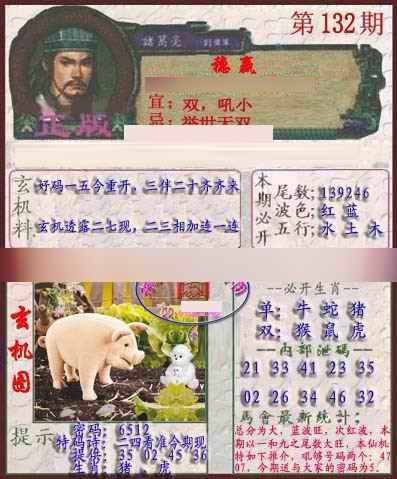 第132期
諸葛亮
稳赢
宜：双，吼小
忌：举世无双
正版
玄机料
好码一五今重开，三伴二十齐齐来
玄机透露二七现，二三相加连一连
本期必开
尾数：139246
波色：红 蓝
五行：水 土 木
玄机图
必开生肖
单：牛 蛇 猪
双：猴 鼠 虎
内部泄码
21 33 41 23 35
02 26 34 46 32
馬會最新统计：
总分为大，蓝波旺，次红波，本
期以一和九之尾数大旺，本仙机
特如下推价，吼够号码两个：47
07，今期送与大家的密码为5.
提示
密码：6512
特码诗：二四看准今期现
提供：35 02 45 36
生肖：猪、虎